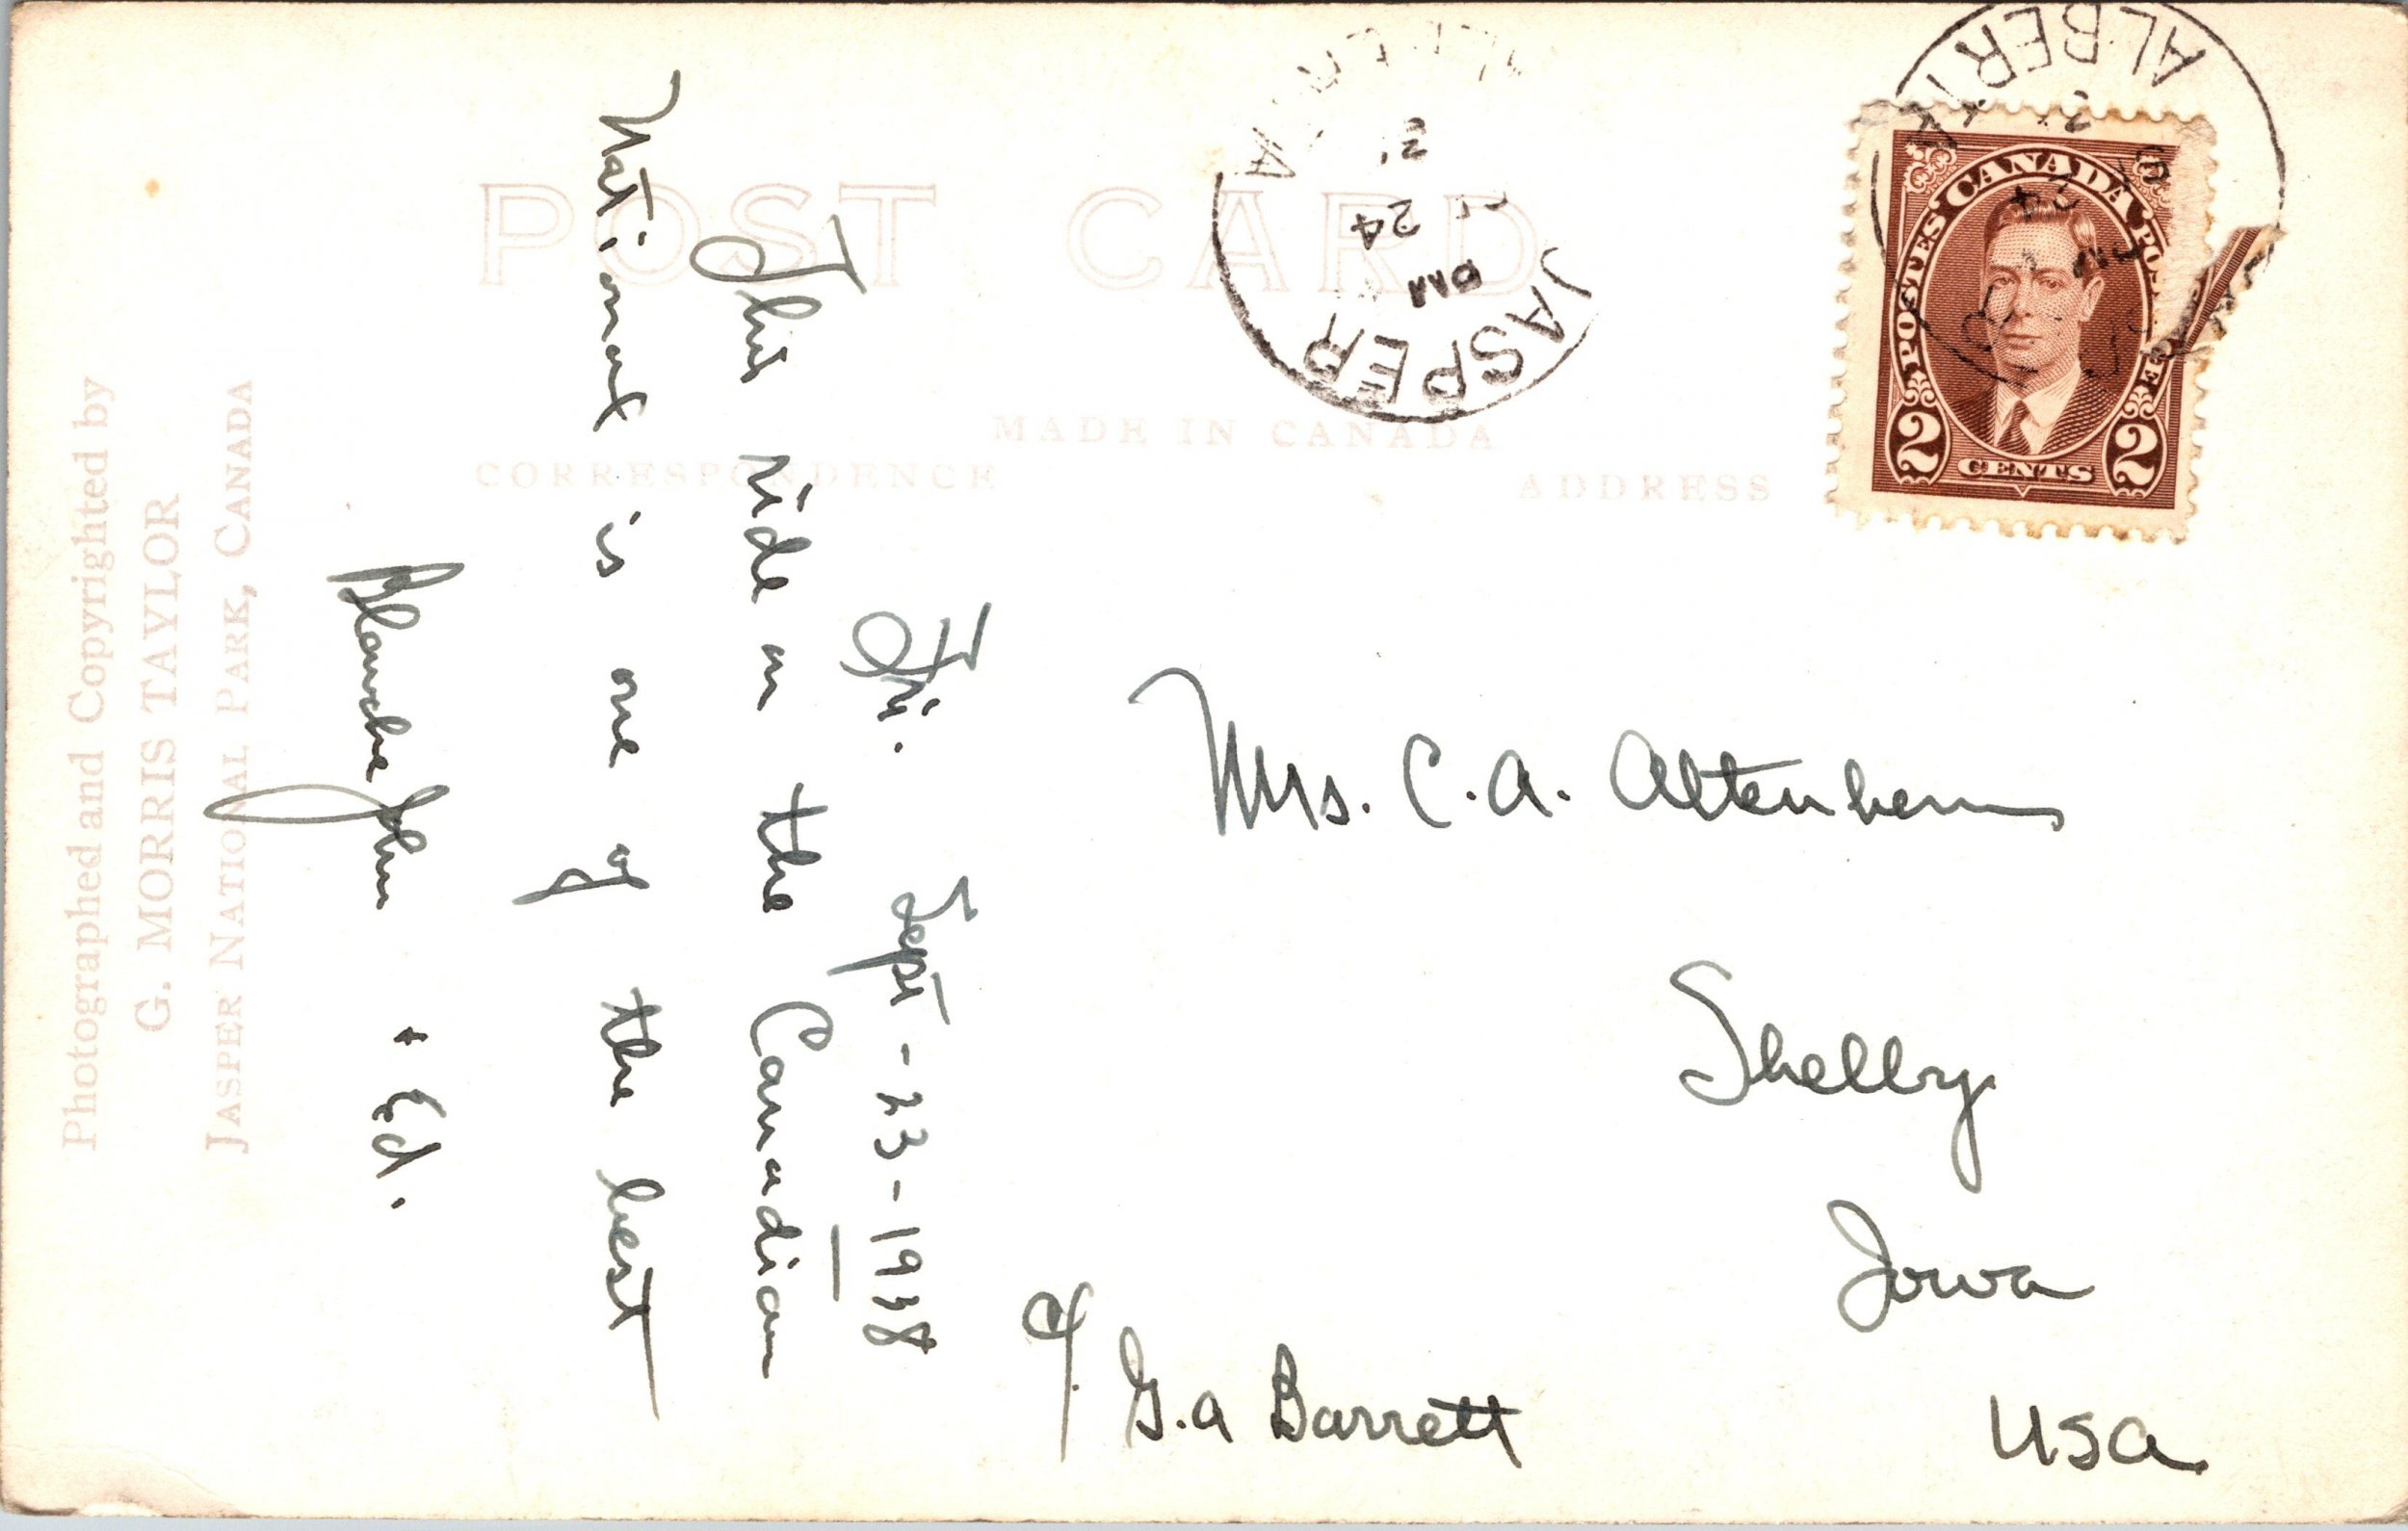 POST CARD
MADE IN CANADA
CORRESPONDENCE
ADDRESS
Photographed and Copyrighted by
G. MORRIS TAYLOR
JASPER NATIONAL PARK, CANADA
Fri. Sept - 23 - 1938
This ride on the Canadian
National is one of the best
Blanche John + Ed.
JASPER
PM
24
ALBERTA
ALBERTA
24
POSTES CANADA POSTAGE
2 CENTS 2
Mrs. C. A.
Shelby
Iowa
USA
G. A Barrett